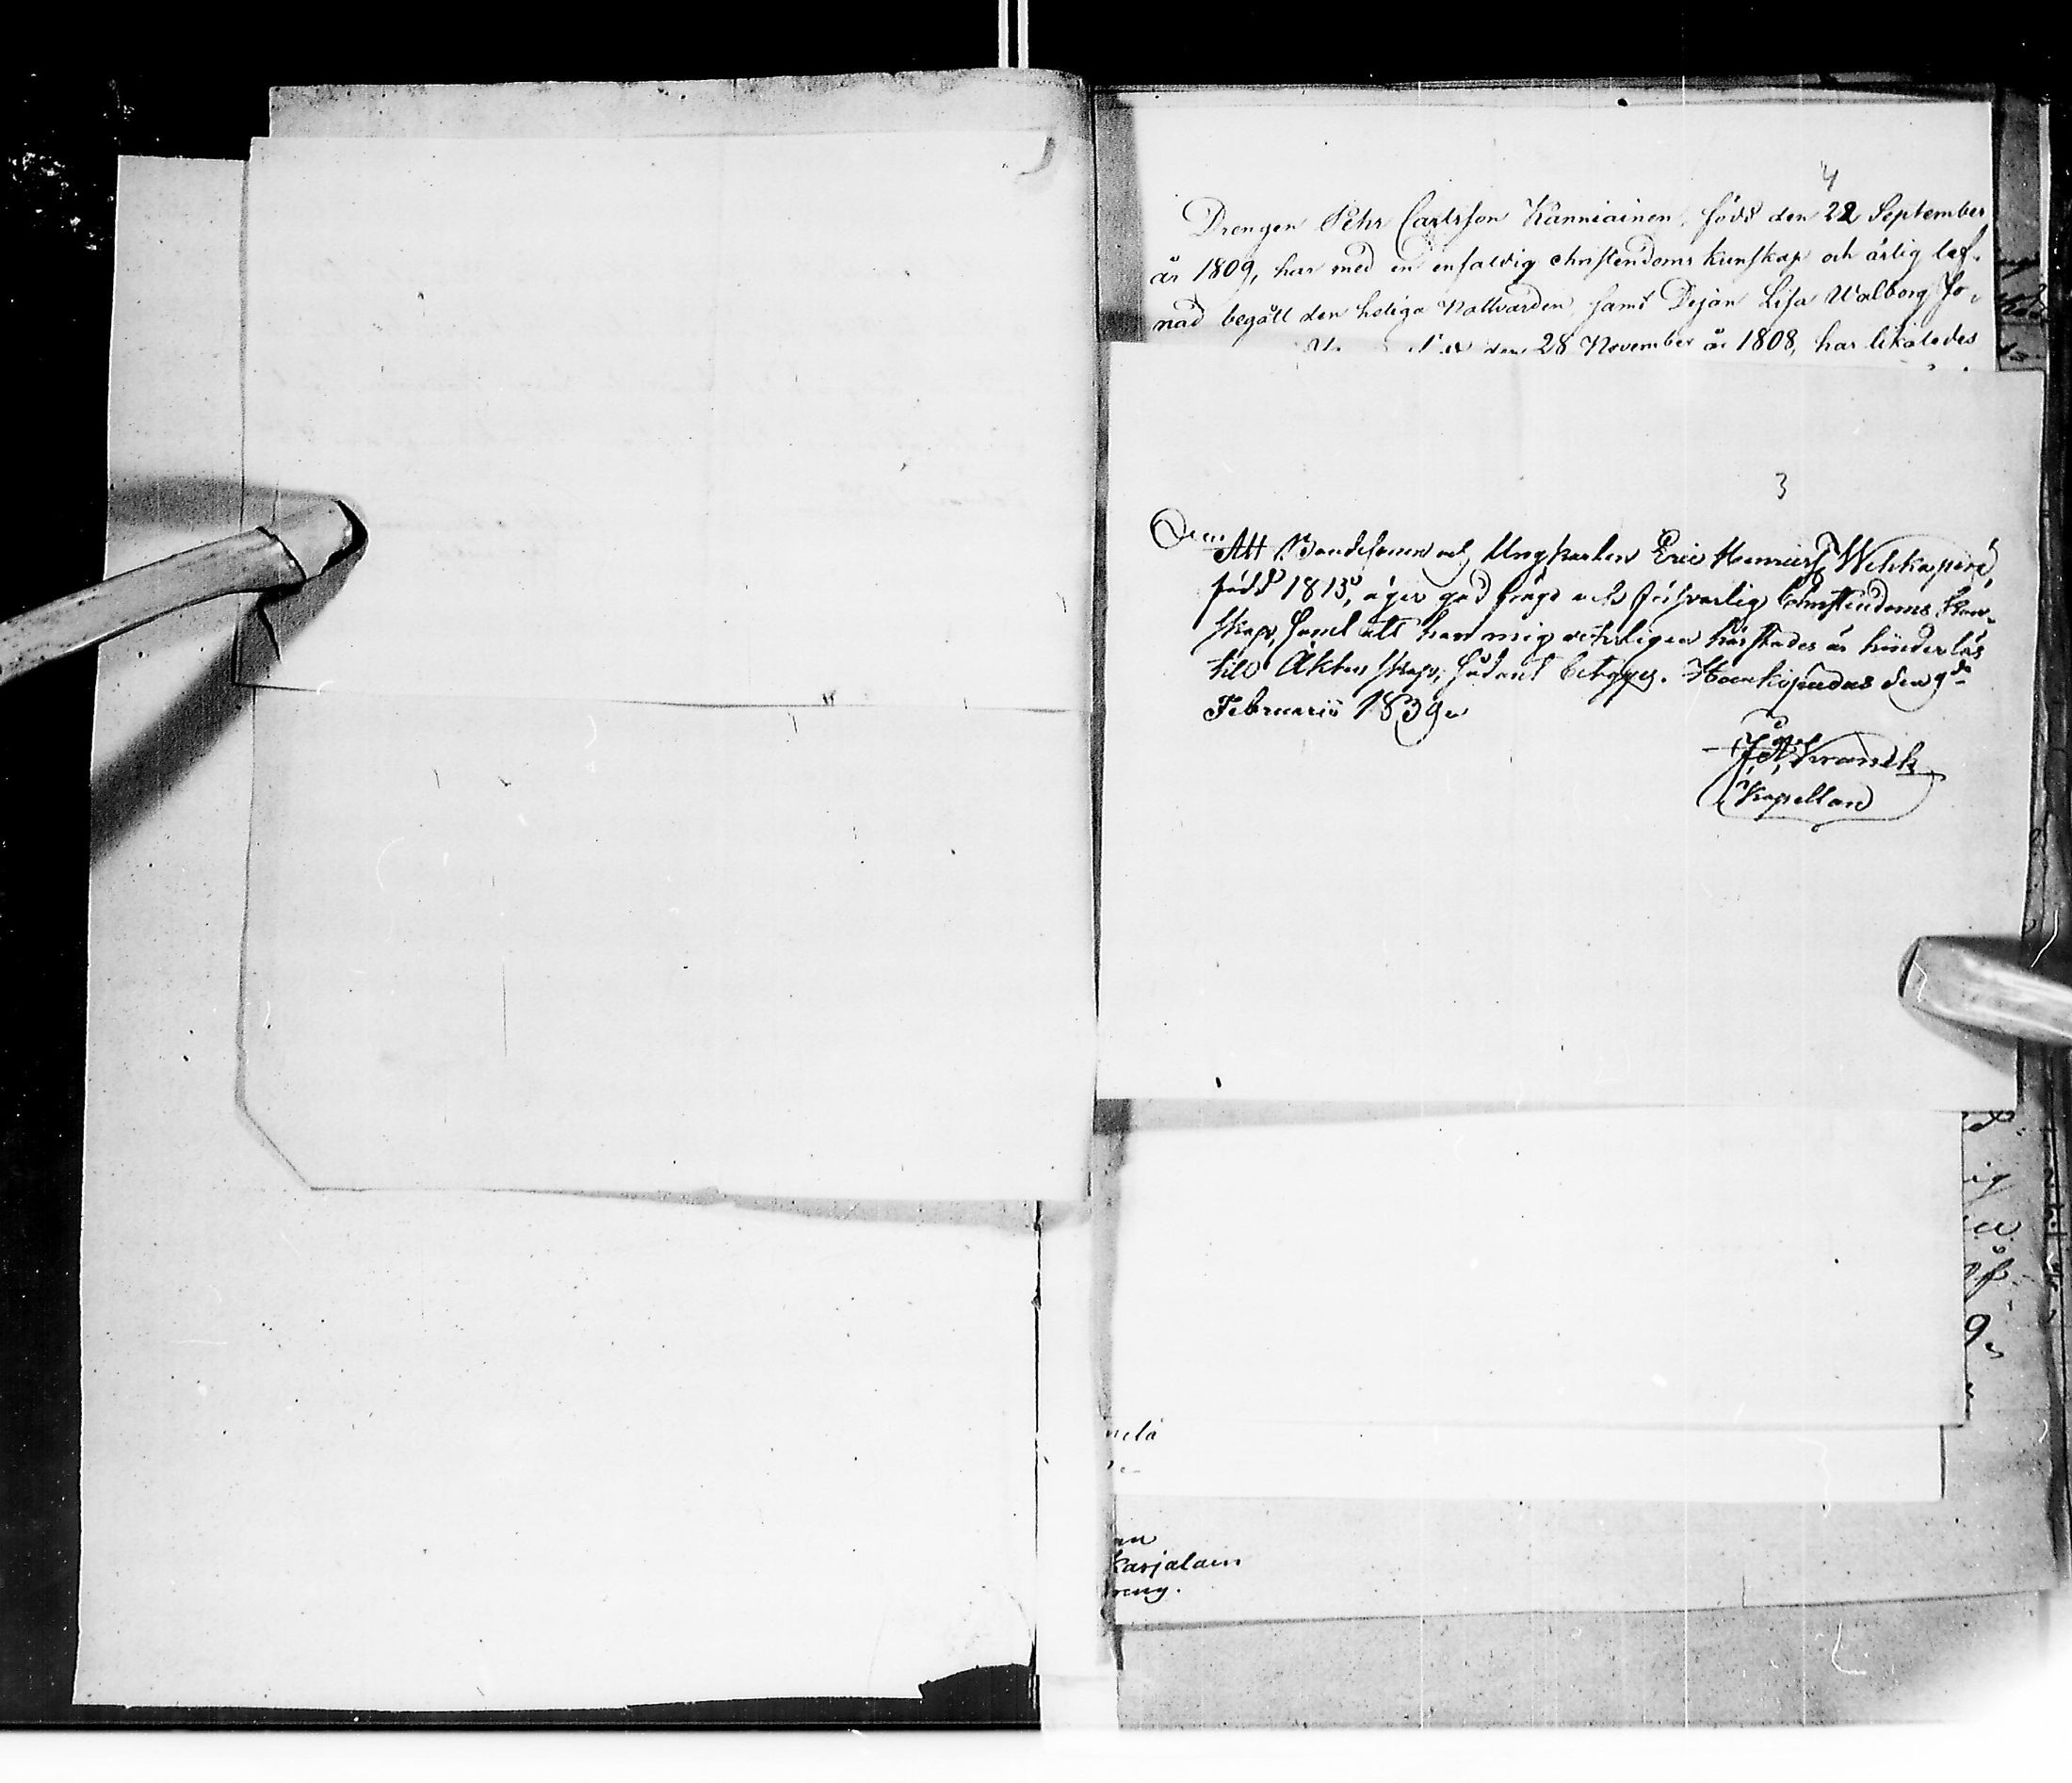 4
Drengen Pehr Carlsson Känniäinen, född den 22 September
år 1809, har med en enfaldig christendoms kunskap och ärlig lef-
nad begått den heliga Nattvarden, samt Pijan Lisa Walborg Jo-
den 28 November år 1808, har likaledes
3
Att Bondesonen och Ungkarlen Eric Henricss. Wehkaperä,
född 1813, äger god frägd och försvarlig Christendoms kun-
skap, samt att han mig veterligen härstädes är hinderlös
till Äktenskap, sådant betygas. Haukipudas den 9de
Februarii 1839.
J. A. Kranck
Kapellan
nelä
karjalain
reng.